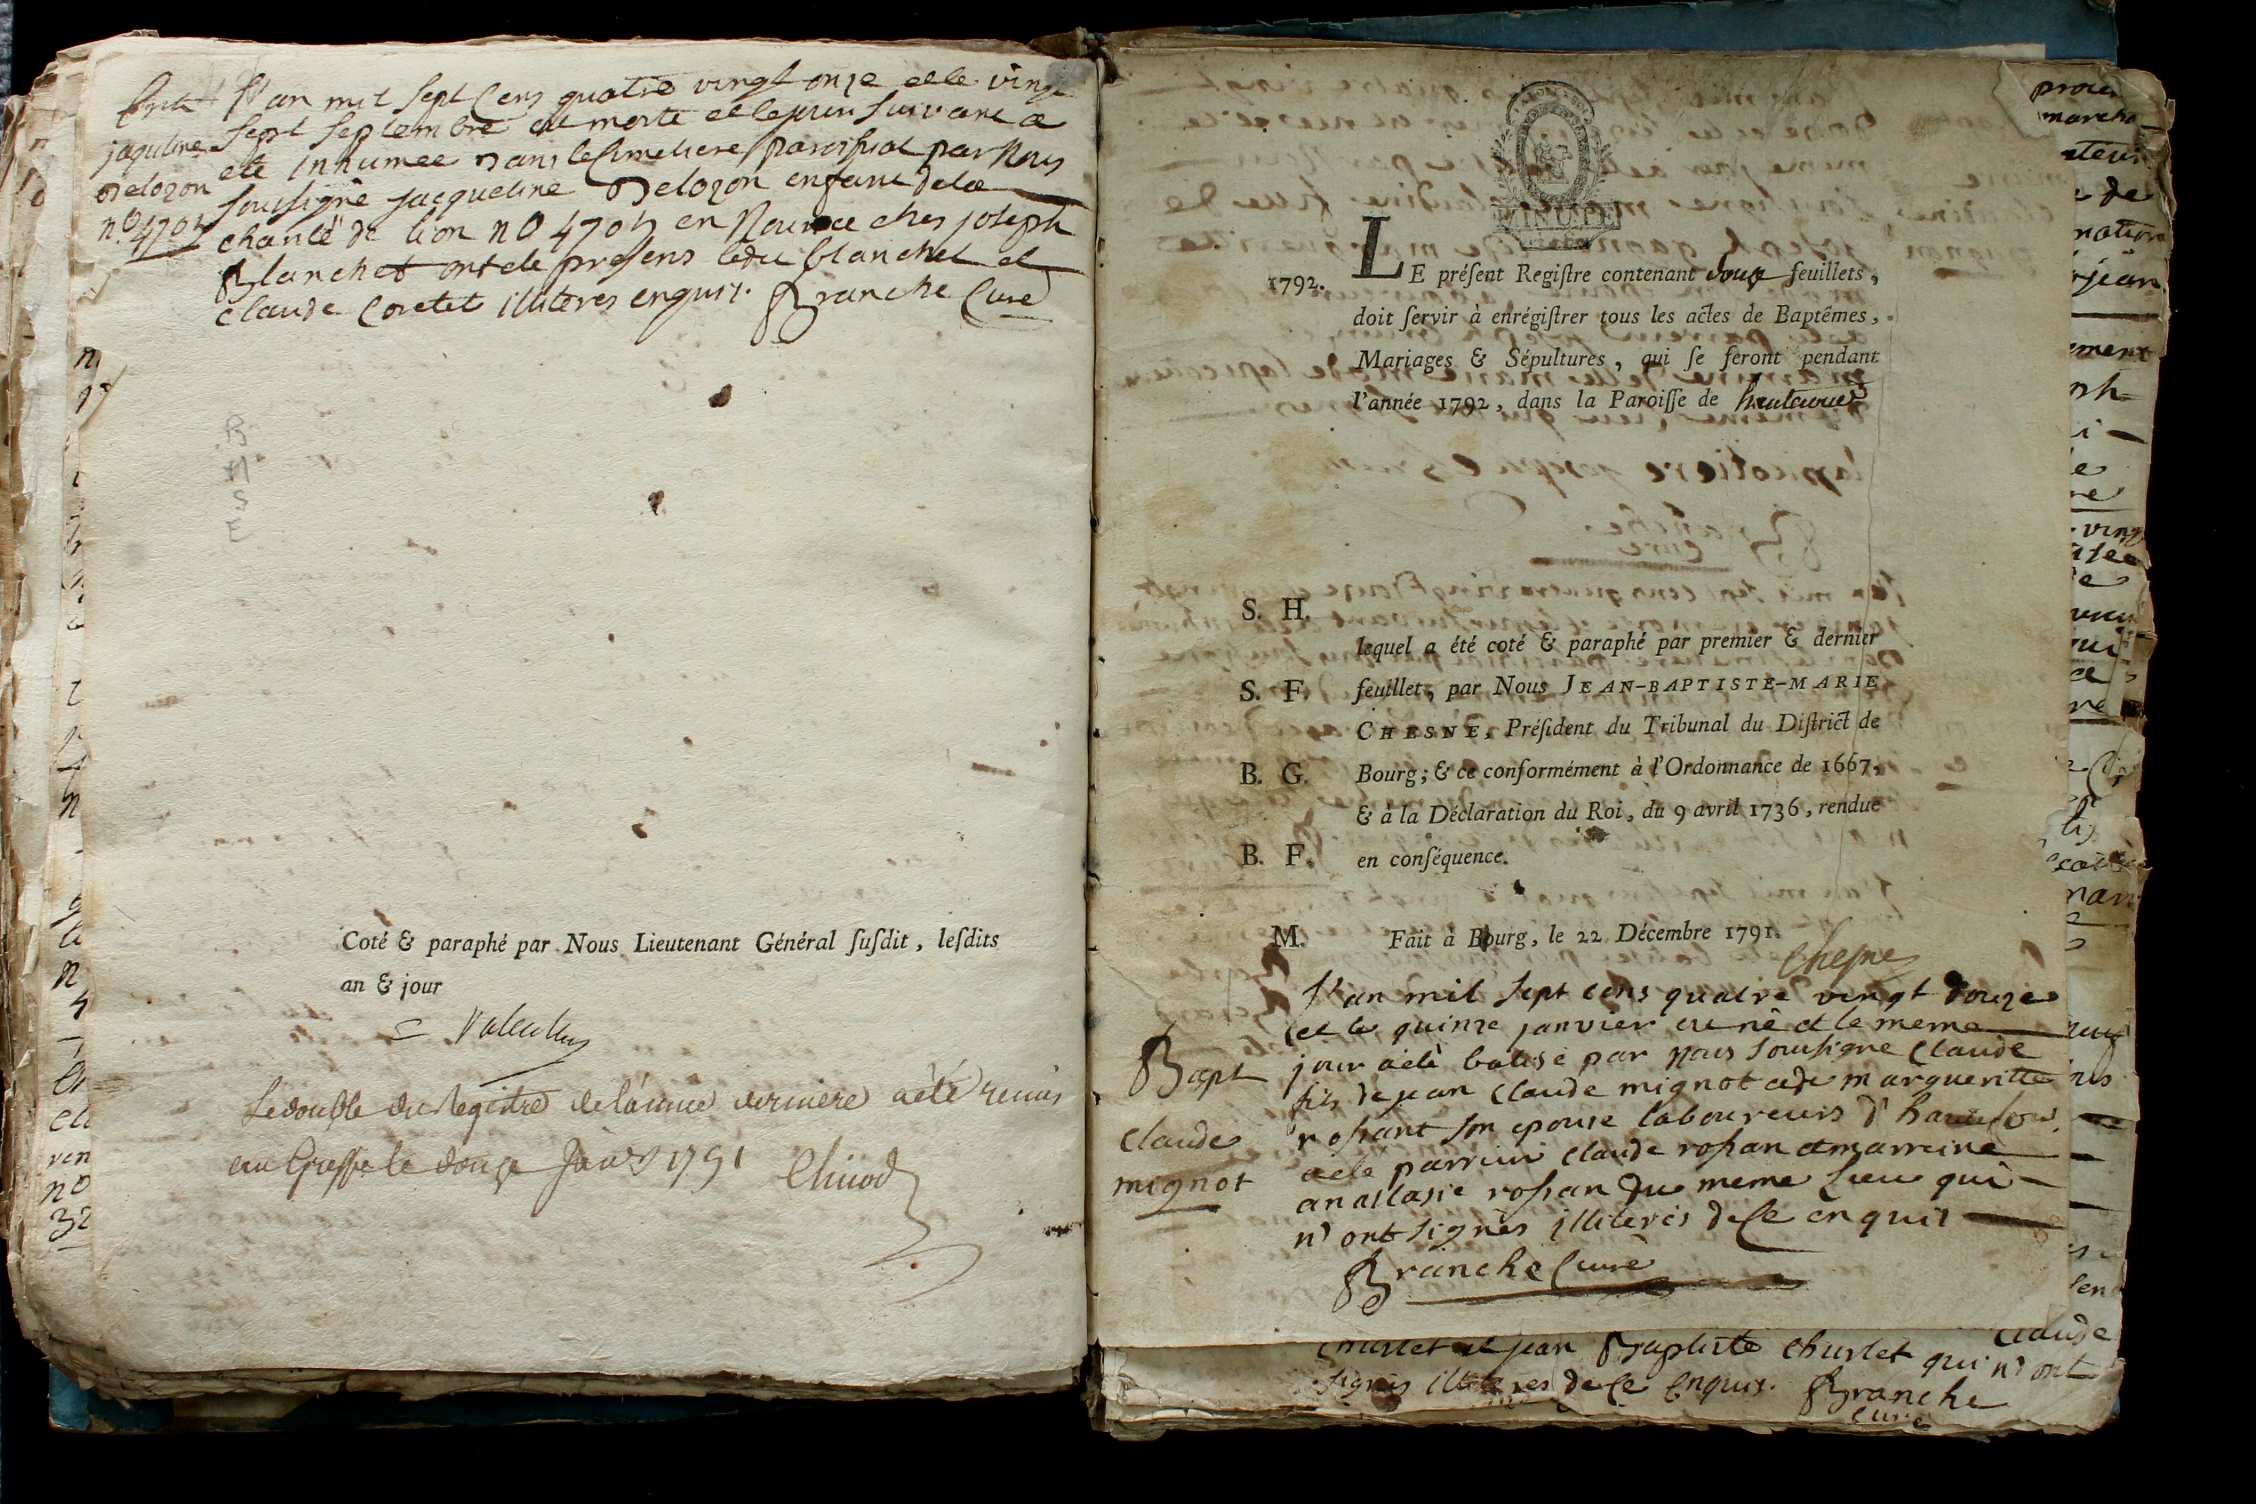 L'an mil sept Cens quatre vingt onze et le vingt
jaquline
sept septembre est morte et le jour suivant a
eté inhumée dans le Cimetiere paroissial par Nous
Delozon
soussigné jacqueline Delozon enfant de la
no 4705
charité de lion no 4705 en Nourice ches joseph
Blanchet ont eté presens ledit blanchet et
claude Coretet illiteres enquis. Branche Curé
B
M
S
E
Coté & paraphé par Nous Lieutenant Général ſuſdit, leſdits
an & jour
Le double du Registre de l'année derniere a été remis
au Greffe le douze 1791
MINUTE
1792. LE préſent Regiſtre contenant douze feuillets,
doit ſervir à enrégiſtrer tous les actes de Baptêmes,
Mariages & Sépultures, qui ſe feront pendant
l'année 1792, dans la Paroiſſe de
S. H.
lequel a été coté & paraphé par premier & dernier
S. F. feuillet, par Nous JEAN-BAPTISTE-MARIE
CHESNE, Préſident du Tribunal du Diſtrict de
B. G. Bourg; & ce conformément à l'Ordonnance de 1667,
& à la Déclaration du Roi, du 9 avril 1736, rendue
B. F. en conſéquence.
M. Fait à Bourg, le 22 Décembre 1791.
Chesne
L'an mil sept cens quatre vingt douze
et le quinze janvier est né et le meme
Bapt
jour a eté batisé par nous soussigné Claude
fils de jean Claude mignot et de margueritte
claude
rossant son epouse laboureurs
mignot
a eté parrein claude rossan et marreine
anastasie rossan du meme lieu qui
n'ont signés illiterés de Ce enquis
Branche Curé
claude
churlet et jean Baptiste churlet qui n'ont
signés illiteres de Ce Enquis. Branche
curé